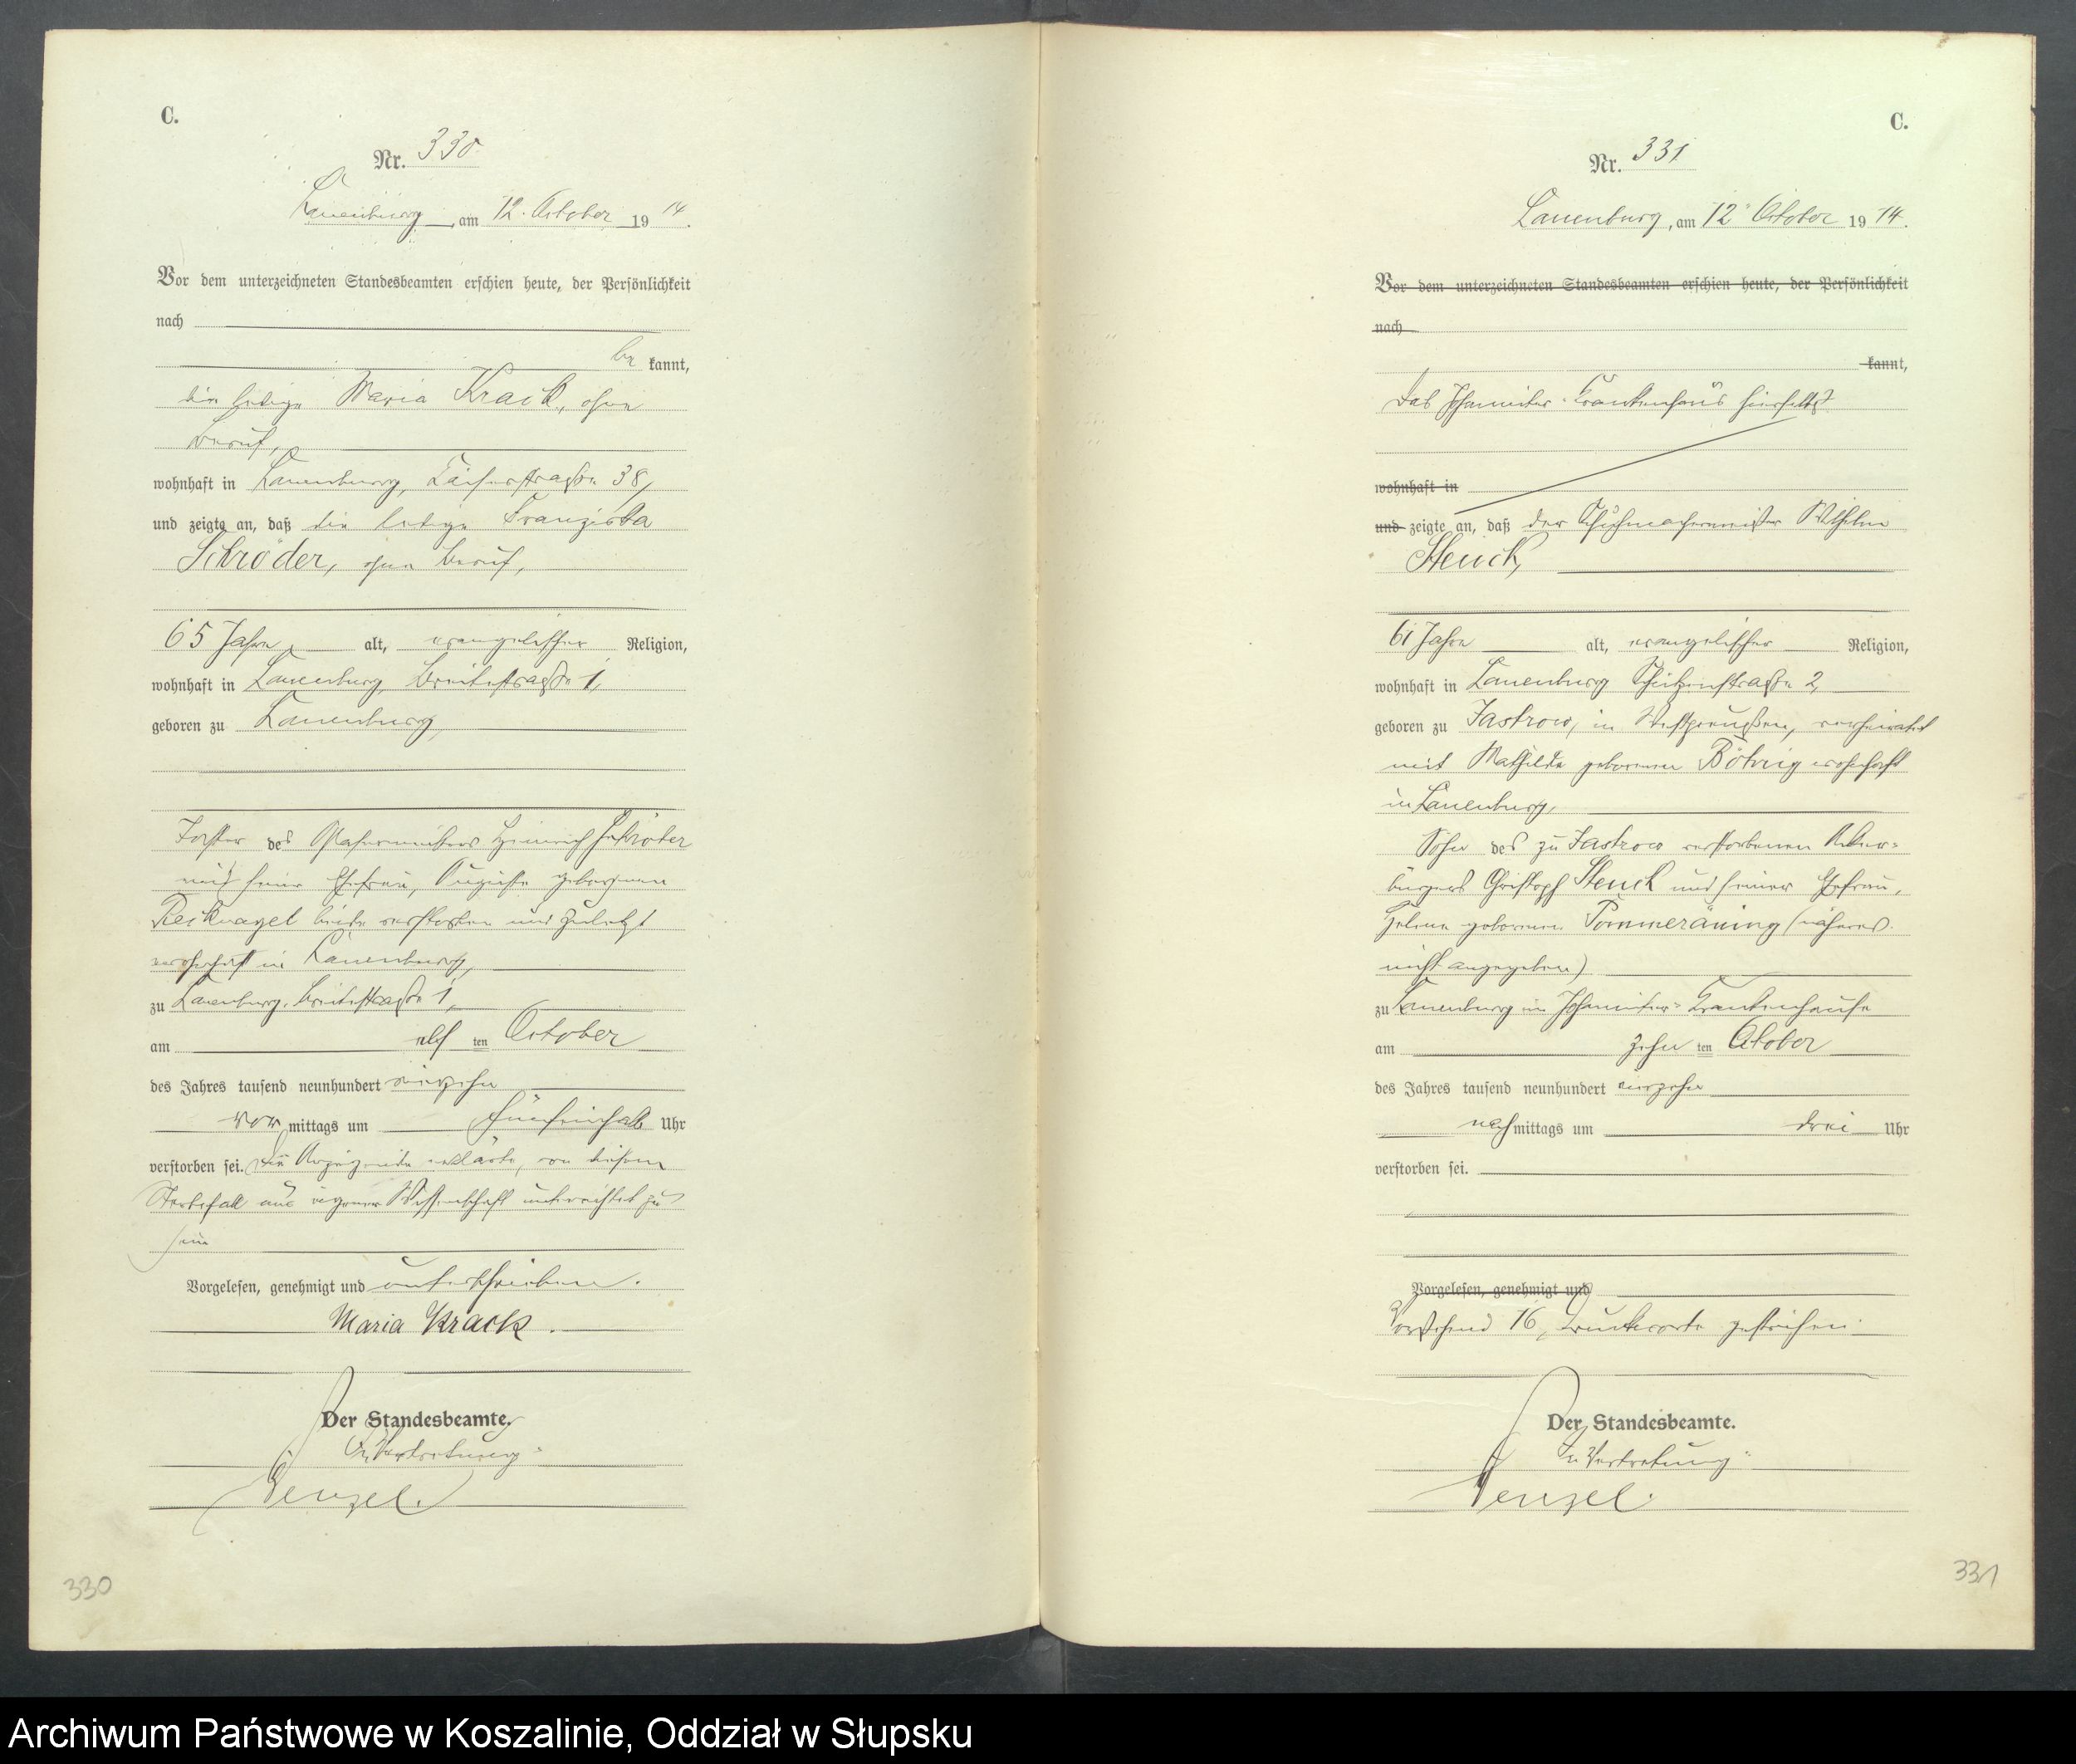 C.
Nr. 330
Lauenburg, am 12. October 1914.
Vor dem unterzeichneten Standesbeamten erschien heute, der Persönlichkeit
nach
be kannt,
die ledige Maria Krack, ohne
Beruf,
wohnhaft in Lauenburg, 38,
und zeigte an, daß die ledige Franziska
Schröder, ohne Beruf,
65 Jahre alt, evangelischer Religion,
wohnhaft in Lauenburg, Breitestraße 1,
geboren zu Lauenburg,
Tochter des Heinrich Schröder
und seiner Ehefrau, Auguste geborenen
Recknagel beide verstorben und zuletzt
wohnhaft in Lauenburg,
zu Lauenburg, Breitestraße 1,
am elf ten October
des Jahres tausend neunhundert vierzehn
vor mittags um fünfeinhalb Uhr
verstorben sei. Die Anzeigende erklärte, von diesem
Sterbefall aus eigener Wissenschaft unterrichtet zu
sein
Vorgelesen, genehmigt und unterschrieben.
Maria Krack.
Der Standesbeamte.
In Vertretung:
Wenzel.
330
C.
Nr. 331
Lauenburg, am 12. October 1914.
Vor dem unterzeichneten Standesbeamten erschien heute, der Persönlichkeit
nach
kannt,
Das Johanniter-Krankenhaus hierselbst
wohnhaft in
und zeigte an, daß der Schuhmachermeister Wilhelm
Steuck,
61 Jahre alt, evangelischer Religion,
wohnhaft in Lauenburg Schützenstraße 2,
geboren zu Jastrow, in Westpreußen, verheiratet
mit Mathilde geborenen wohnhaft
in Lauenburg,
Sohn des zu Jastrow verstorbenen Acker-
bürgers Christoph Steuck und seiner Ehefrau,
Helene geborenen Pommeräning (näheres
nicht angegeben)
zu Lauenburg im Johanniter-Krankenhause
am zehn ten October
des Jahres tausend neunhundert vierzehn
nach mittags um drei Uhr
verstorben sei.
Vorgelesen, genehmigt und
Vorstehend 16 Druckworte gestrichen.
Der Standesbeamte.
In Vertretung:
Wenzel.
331
Archiwum Państwowe w Koszalinie, Oddział w Słupsku